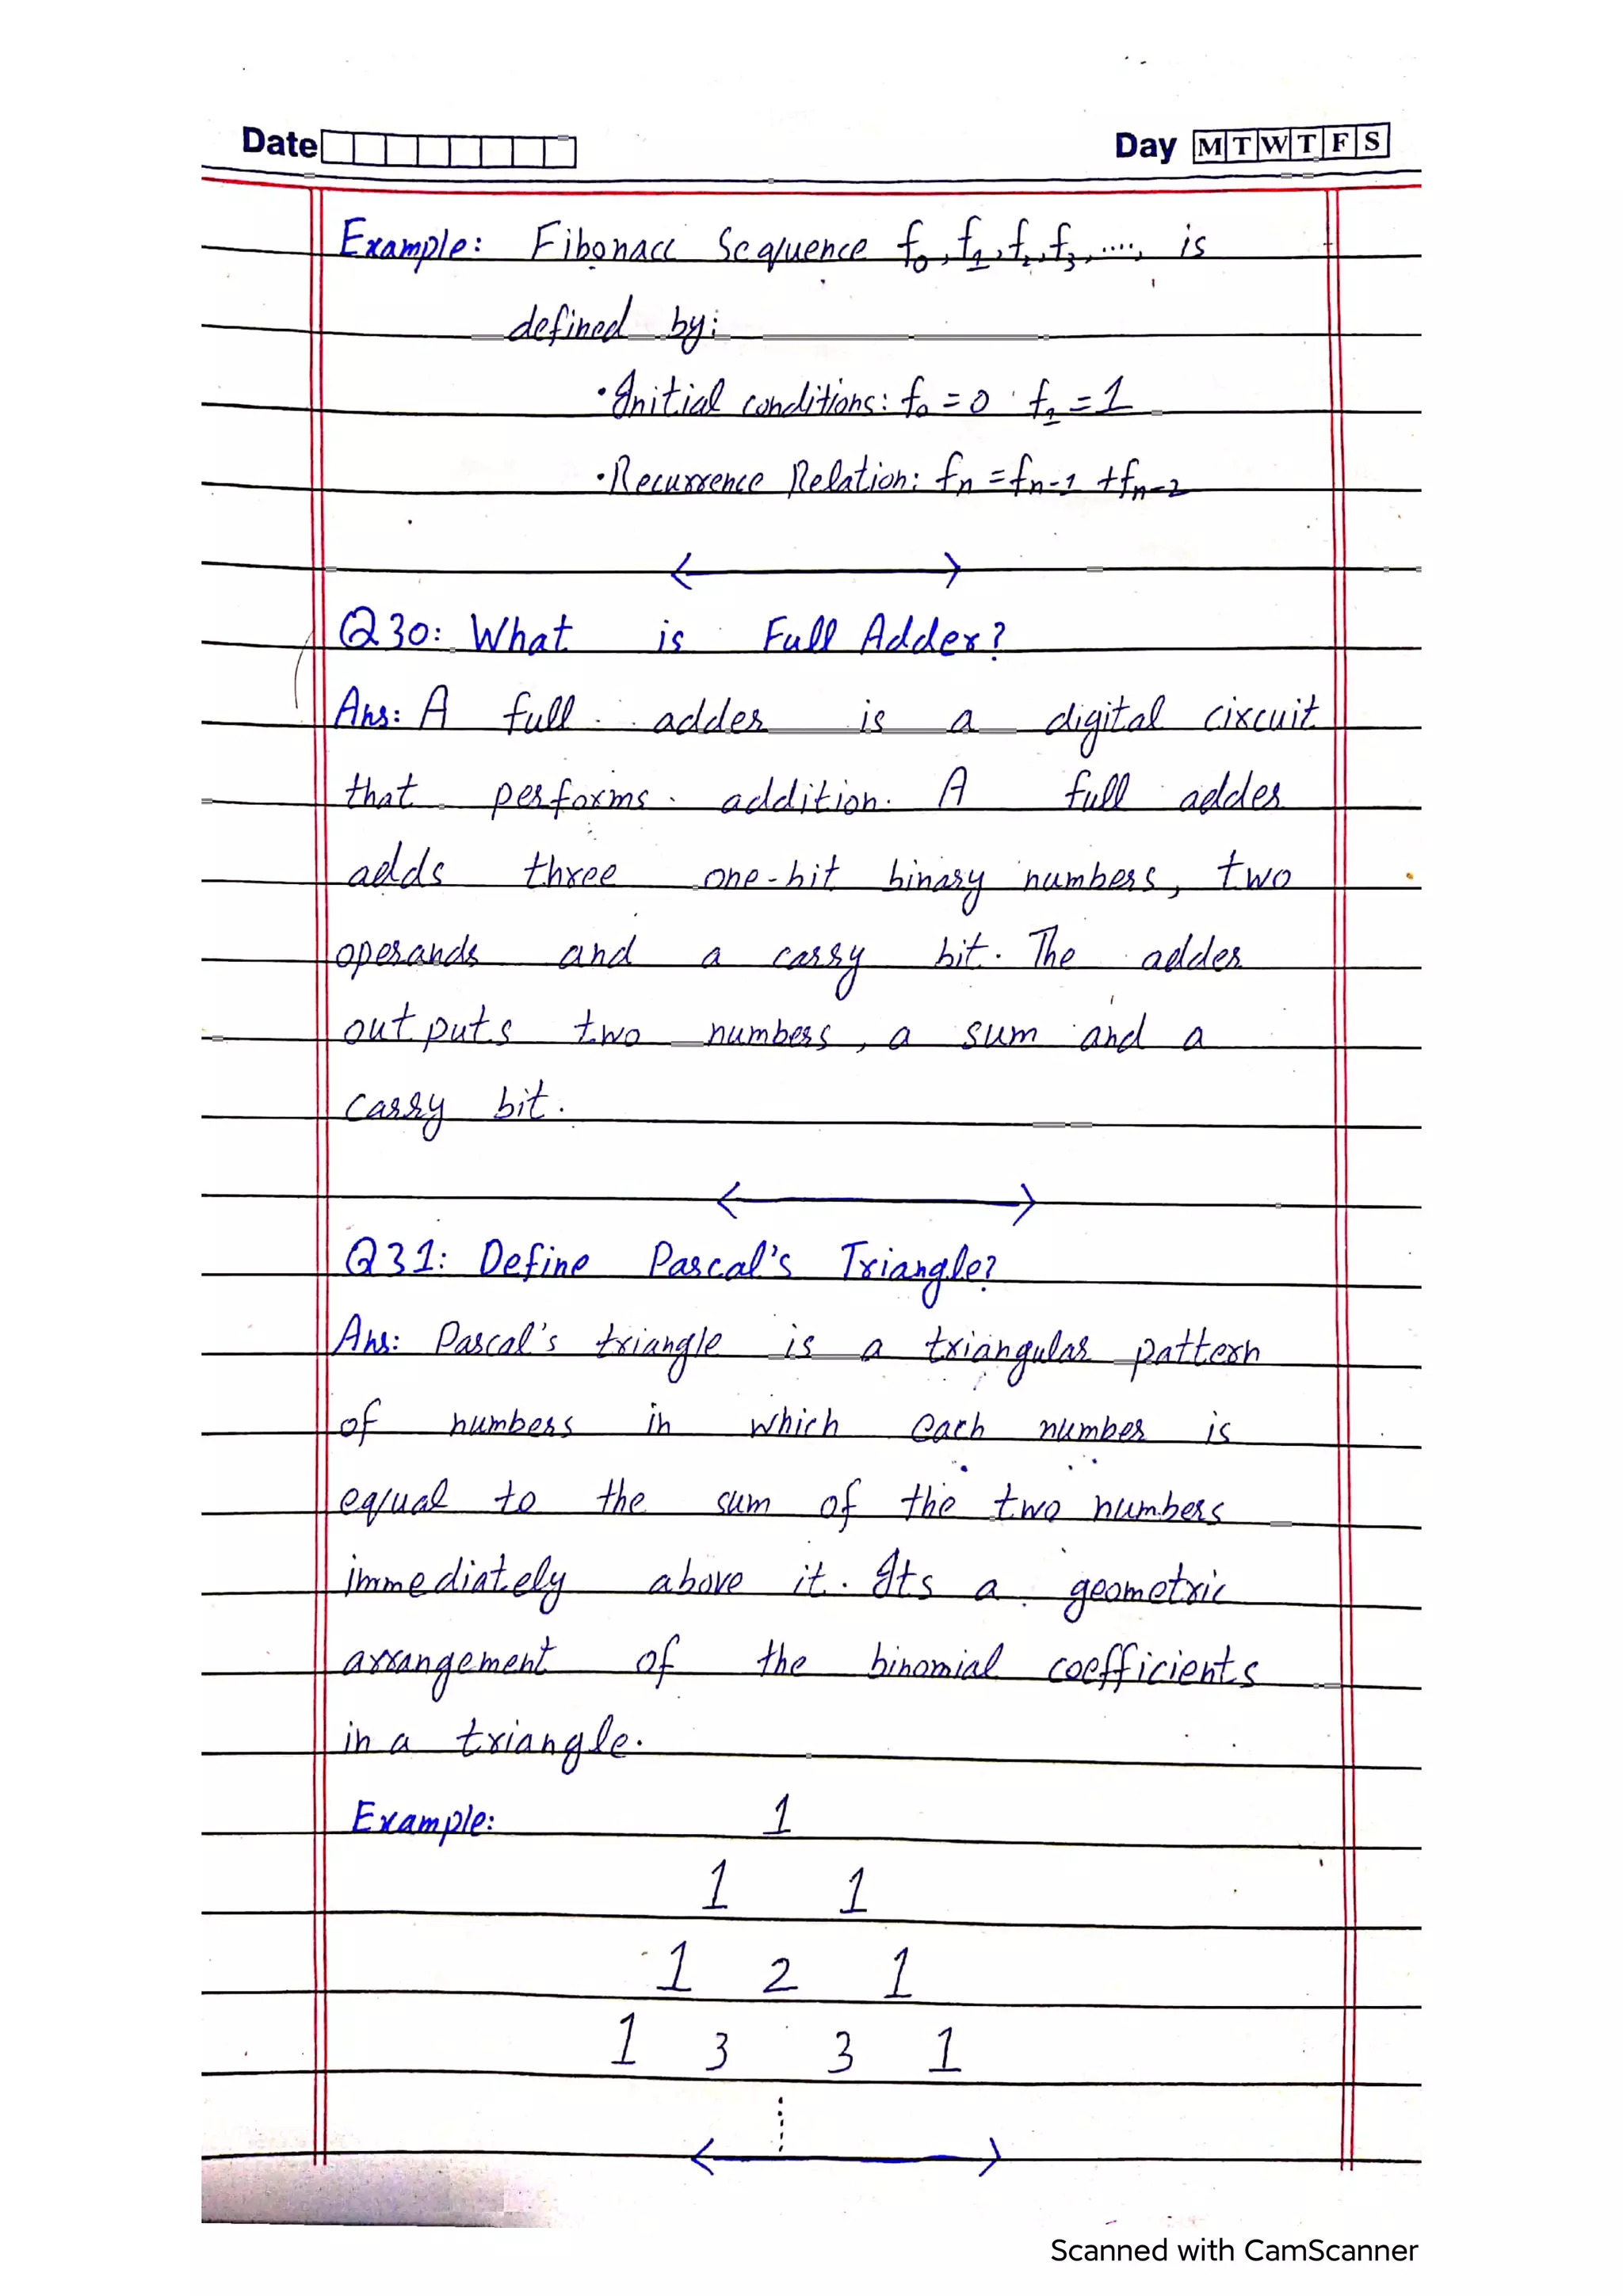 Date Day M T W T F S
Example: Fibonacc Sequence f₀, f₁, f₂, f₃, ...., is
defined by:
• Initial conditions: f₀ = 0 f₁ = 1
• Recurrence Relation: fn = fn-1 + fn-2
Q30: What is Full Adder?
Ans: A full adder is a digital circuit
that performs addition. A full adder
adds three one-bit binary numbers, two
operands and a carry bit. The adder
outputs two numbers, a sum and a
carry bit.
Q31: Define Pascal's Triangle?
Ans: Pascal's triangle is a triangular pattern
of numbers in which each number is
equal to the sum of the two numbers
immediately above it. Its a geometric
arrangement of the binomial coefficients
in a triangle.
Example: 1
1 1
1 2 1
1 3 3 1
Scanned with CamScanner